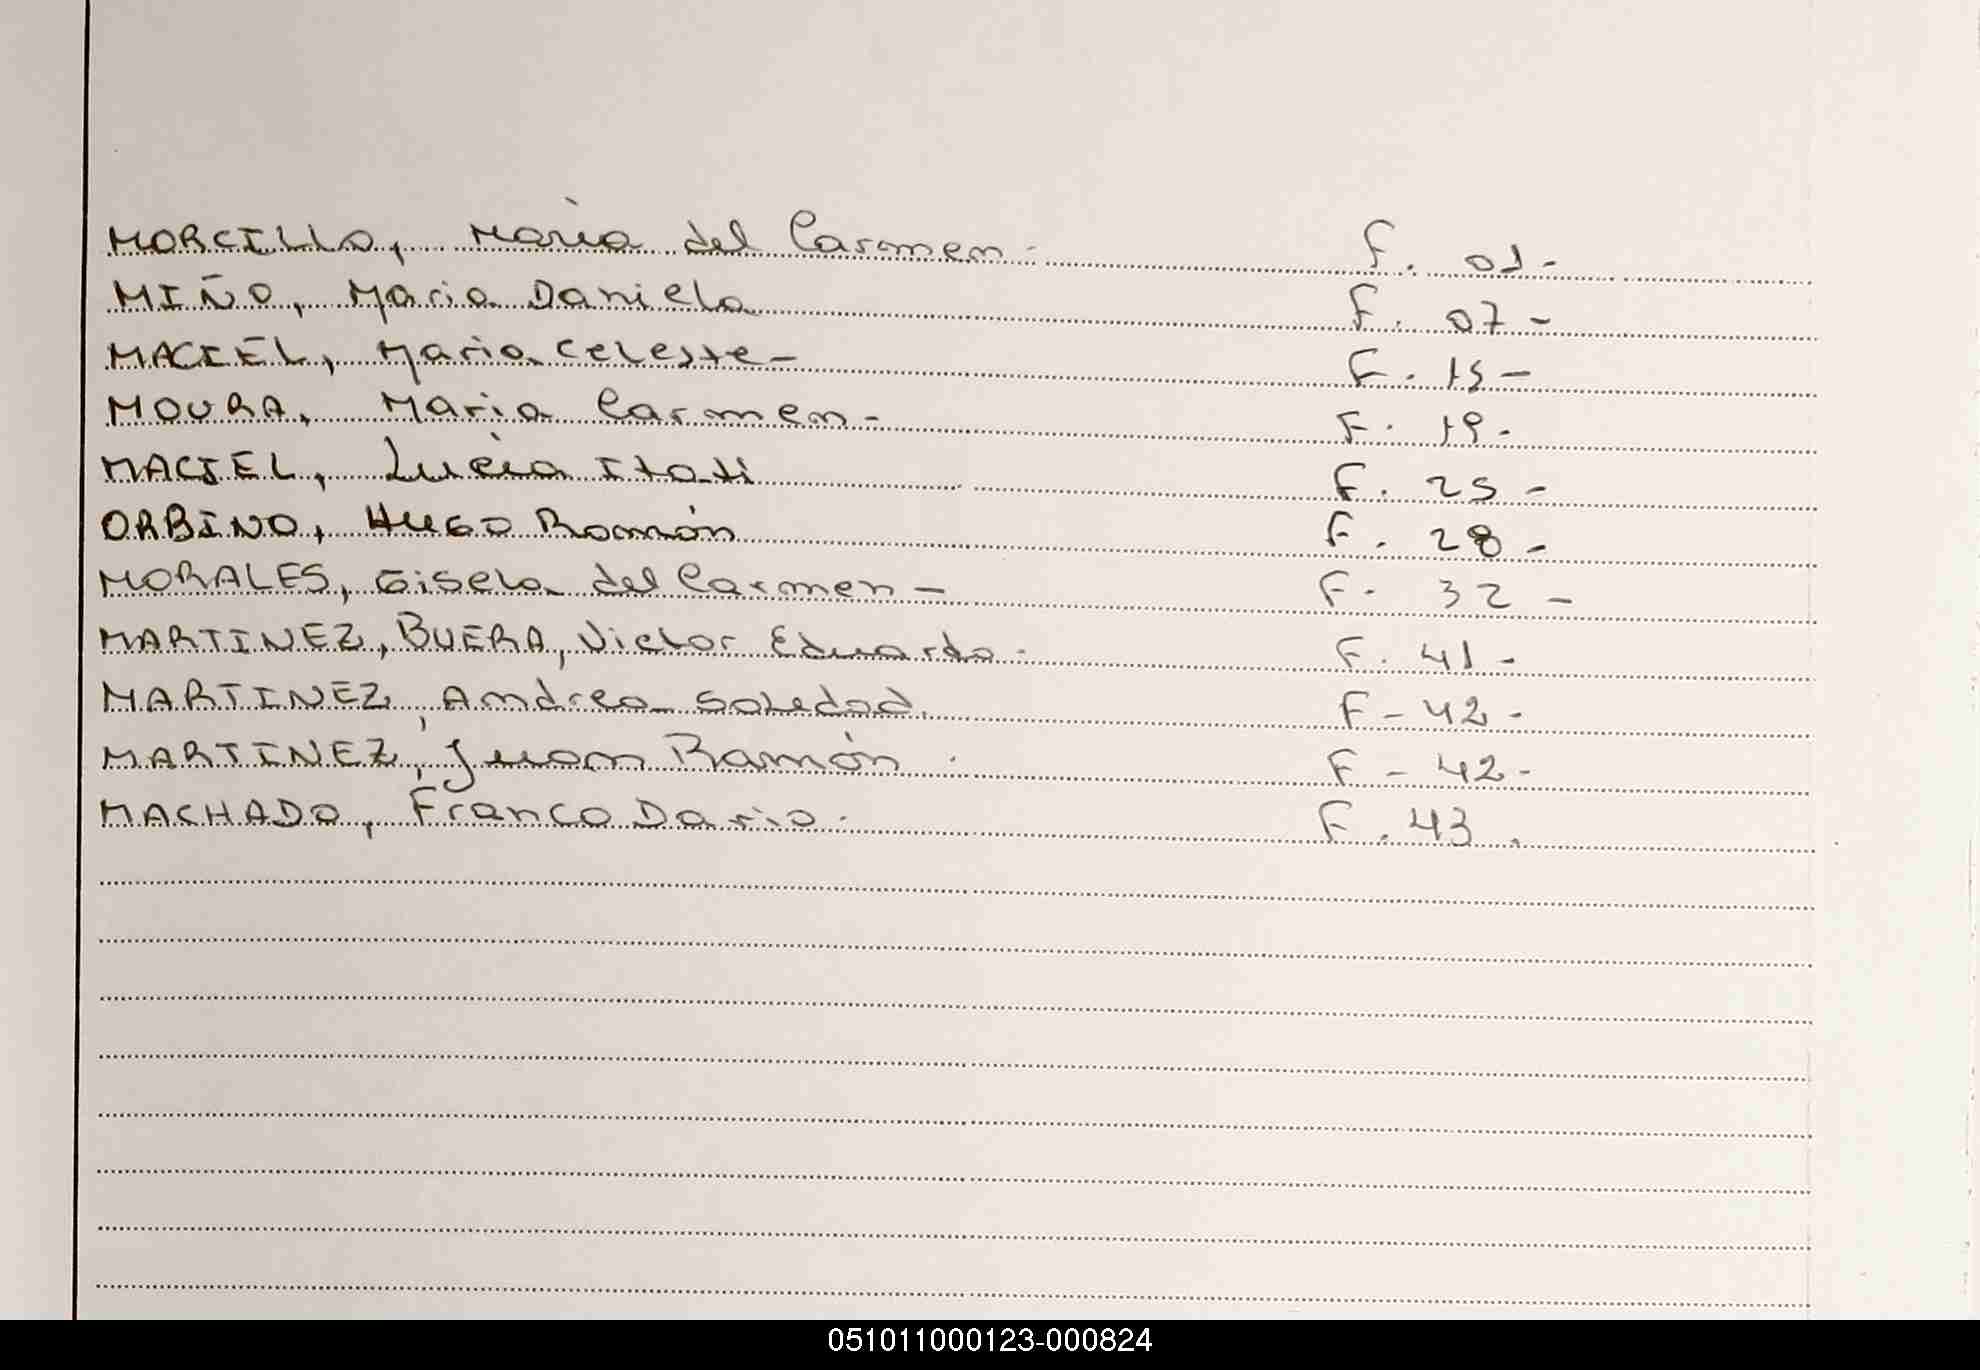 MORCILLO, María del Carmen - F. 01 -
MIÑO, Maria Daniela F. 07 -
MACIEL, Maria Celeste - F. 15 -
MOURA, Maria Carmen - F. 19 -
MACIEL, Lucía Itati F. 25 -
ORBINO, HUGO Román F. 28 -
MORALES, Gisela del Carmen - F. 32 -
MARTINEZ, BUERA, Victor Eduardo - F. 41 -
MARTINEZ, Andrea Soledad. F - 42 -
MARTINEZ, Juan Ramón. F - 42 -
MACHADO, Franco Dario. F. 43.
051011000123-000824